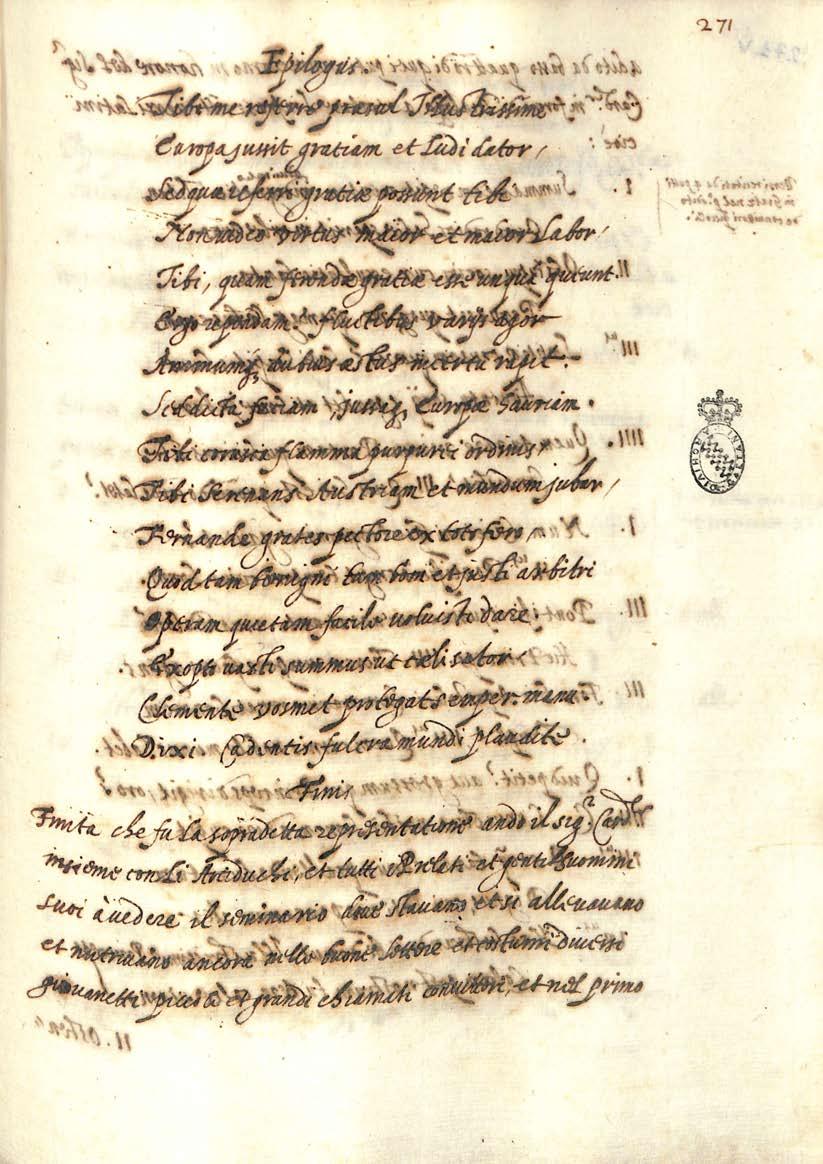 271
Epilogus.
Tibi me refero præsul Illustrissime
Europa jussit gratiam et Ludi dator,
Sed quæ referri gratiæ possunt tibi
Non video virtus maior et maior Labor,
Tibi, quam ferendæ gratiæ esse unquã queunt.
Ergo rependam? fluctibus varijs agor
Animumq; dubius æstus incertũ rapit.
Sed dicta faciam, jussaq; Europæ hauriam.
Tibi corusca flamma purpurei ordinis,
Tibi serenans Austriam et mundum jubar,
Fernande grates pectore ex toto fero,
Quod tam benigni tam boni et justi arbitri
Operam quietam facile voluisti dare.
Exopto vasti summus ut cæli sator,
Clemente vosmet protegat semper manu.
Dixi. Cadentis fulcra mundi plaudite.
Finis
Finita che fu la sopradetta representatione andò il sigr. Cardle
insieme con li Arciduchi, et tutti i Prelati et gentilhuomini
suoi à vedere il seminario dove stavano et si allevavano
et nutrivano ancora nelle buone lettere et costumi diversi
giovanetti piccoli et grandi chiamati convittori, et nel primo